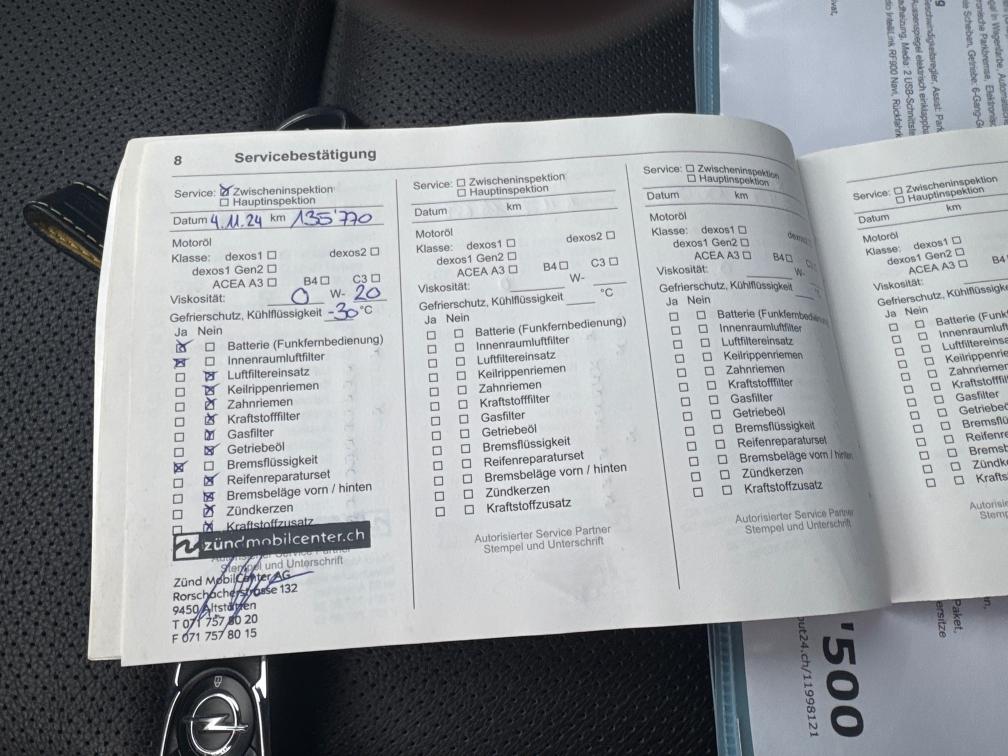 8 Servicebestätigung
Service: Zwischeninspektion
Hauptinspektion
Datum 4.11.24 km 135'770
Motoröl
Klasse: dexos1 dexos2
dexos1 Gen2
ACEA A3 B4 C3
Viskosität: 0 W- 20
Gefrierschutz, Kühlflüssigkeit -30 °C
Ja Nein
Batterie (Funkfernbedienung)
Innenraumluftfilter
Luftfiltereinsatz
Keilrippenriemen
Zahnriemen
Kraftstofffilter
Gasfilter
Getriebeöl
Bremsflüssigkeit
Reifenreparaturset
Bremsbeläge vorn / hinten
Zündkerzen
Kraftstoffzusatz
zündmobilcenter.ch
Stempel und Unterschrift
Zünd MobilCenter AG
Rorschacherstrasse 132
9450 Altstätten
T 071 757 80 20
F 071 757 80 15
Service: Zwischeninspektion
Hauptinspektion
Datum km
Motoröl
Klasse: dexos1 dexos2
dexos1 Gen2
ACEA A3 B4 C3
Viskosität: W-
Gefrierschutz, Kühlflüssigkeit °C
Ja Nein
Batterie (Funkfernbedienung)
Innenraumluftfilter
Luftfiltereinsatz
Keilrippenriemen
Zahnriemen
Kraftstofffilter
Gasfilter
Getriebeöl
Bremsflüssigkeit
Reifenreparaturset
Bremsbeläge vorn / hinten
Zündkerzen
Kraftstoffzusatz
Autorisierter Service Partner
Stempel und Unterschrift
Service: Zwischeninspektion
Hauptinspektion
Datum km
Motoröl
Klasse: dexos1
dexos1 Gen2
ACEA A3 B4
Viskosität: W-
Gefrierschutz, Kühlflüssigkeit
Ja Nein
Batterie (Funkfernbedienung)
Innenraumluftfilter
Luftfiltereinsatz
Keilrippenriemen
Zahnriemen
Kraftstofffilter
Gasfilter
Getriebeöl
Bremsflüssigkeit
Reifenreparaturset
Bremsbeläge vorn / hinten
Zündkerzen
Kraftstoffzusatz
Autorisierter Service Partner
Stempel und Unterschrift
Service: Zwischeninspektion
Hauptinspektion
Datum km
Motoröl
Klasse: dexos1
dexos1 Gen2
ACEA A3 B4
Viskosität:
Gefrierschutz,
Ja Nein
Batterie
Zahnriemen
Gasfilter
'500